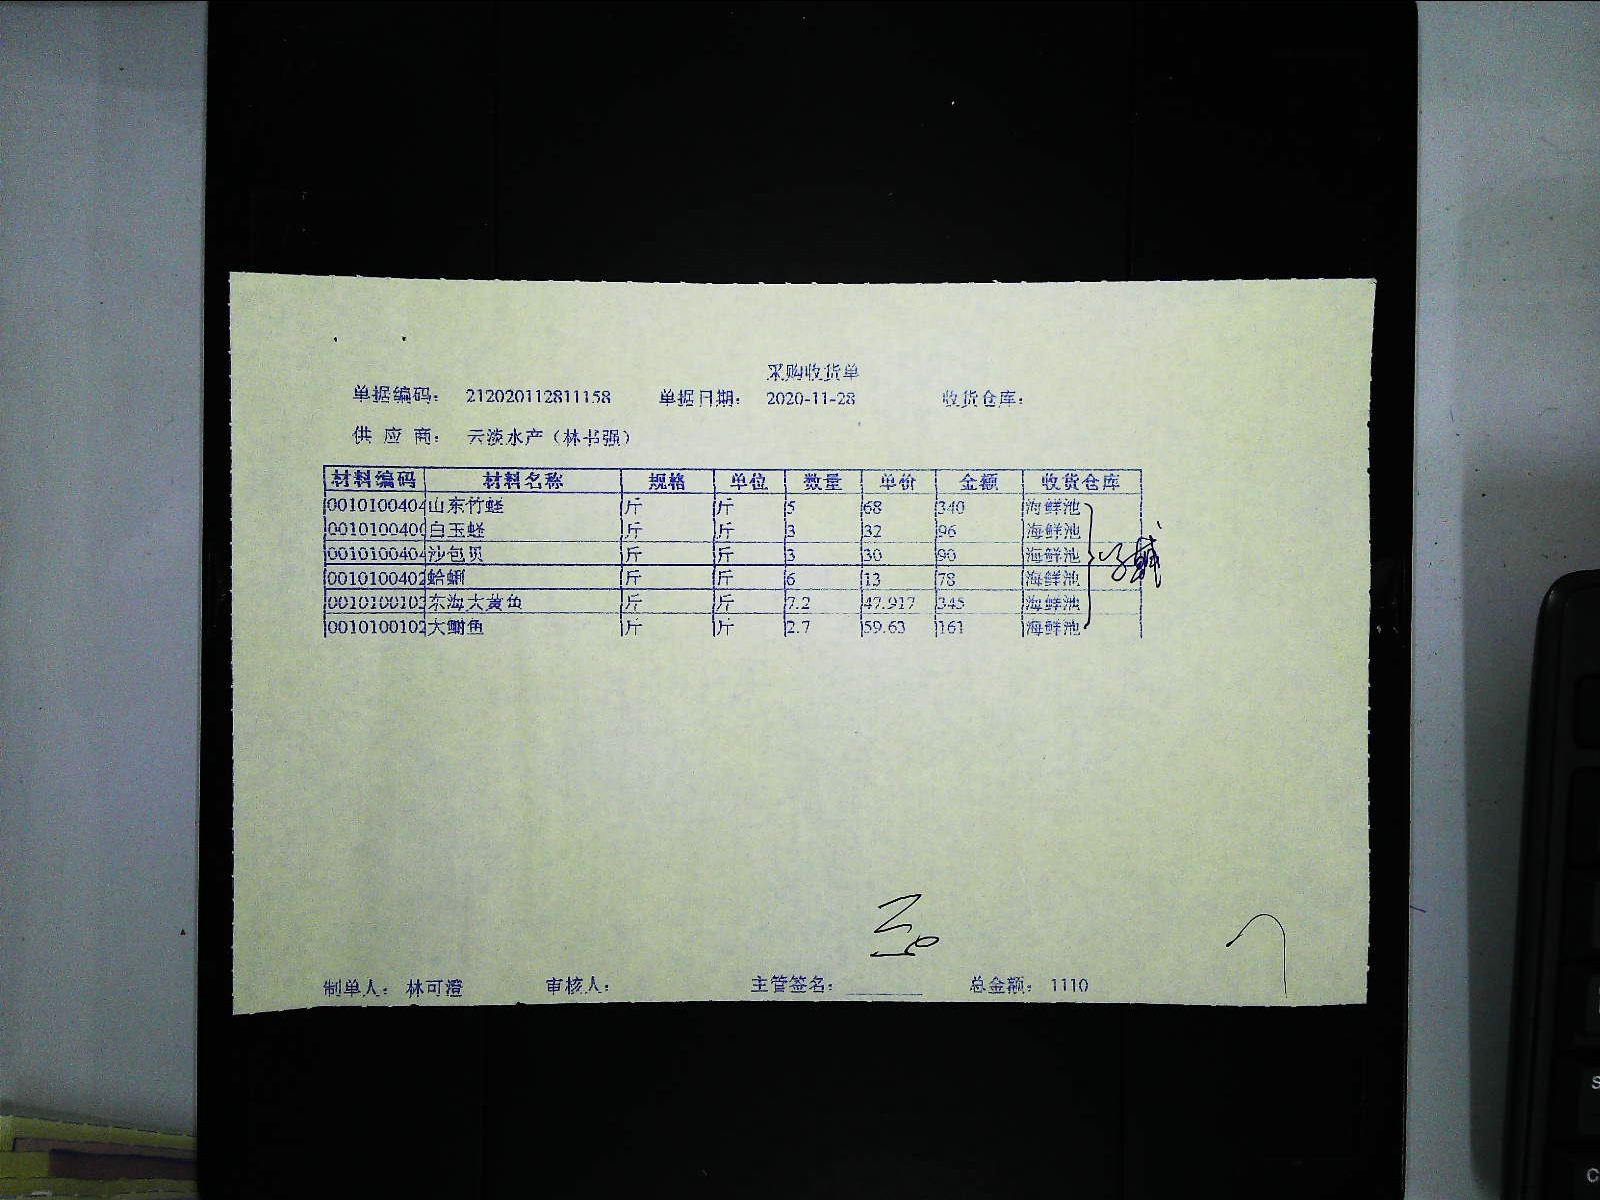 采购收货单
单据编码: 212020112811158 单据日期: 2020-11-28 收货仓库:
供 应 商: 云淡水产(林书强)
材料编码 材料名称 规格 单位 数量 单价 金额 收货仓库
0010100404 山东竹蛏 斤 斤 5 68 340 海鲜池
001010040 白玉蛏 斤 斤 3 32 96 海鲜池
0010100404 沙包贝 斤 斤 3 30 90 海鲜池
0010100402 蛤蜊 斤 斤 6 13 78 海鲜池
001010010 东海大黄鱼 斤 斤 7.2 47.917 345 海鲜池
0010100102 大鮒鱼 斤 斤 2.7 59.63 161 海鲜池
制单人: 林可澄 审核人: 主管签名: 总金额: 1110